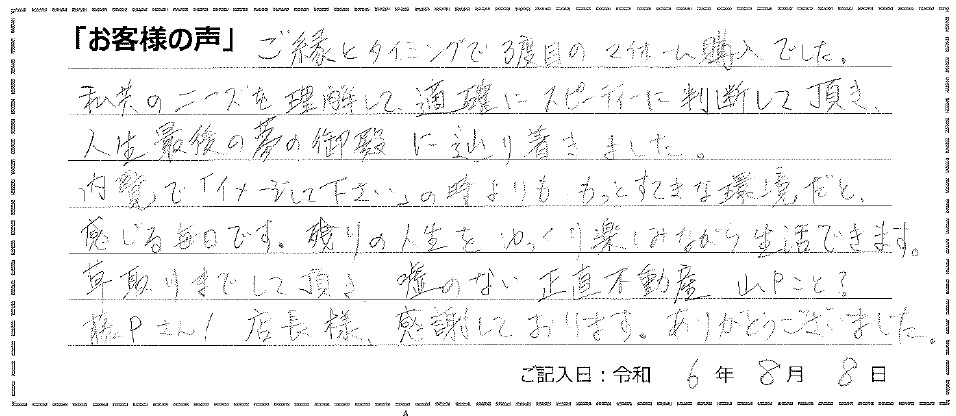 「お客様の声」 ご縁とタイミングで3度目のマイホーム購入でした。
私共のニーズを理解して、適確にスピーディーに判断して頂き、
人生最後の夢の御殿に辿り着きました。
内覧で「イメージして下さい」の時よりも もっとすてきな環境だと、
感じる毎日です。残りの人生をゆっくり楽しみながら生活できます。
草取りまでして頂き 嘘のない 正直不動産 山Pこと?
藤Pさん! 店長様、感謝しております。ありがとうございました。
ご記入日:令和 6年 8月 8日
A